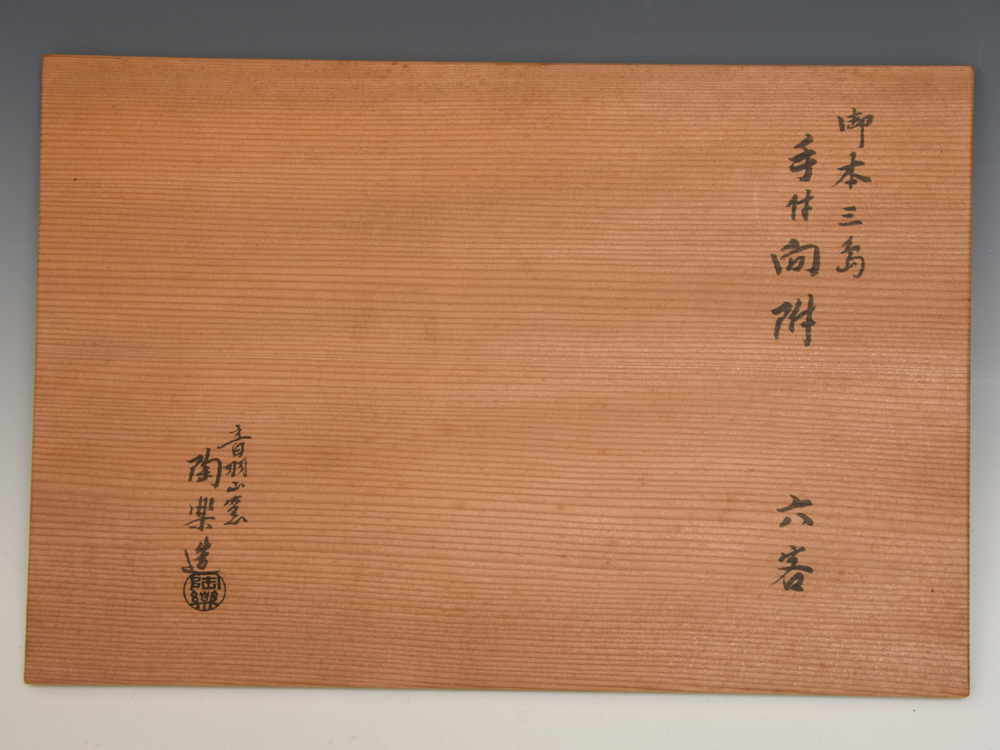 御本三島
手付向附
六客
音羽山窯
陶楽造
陶樂